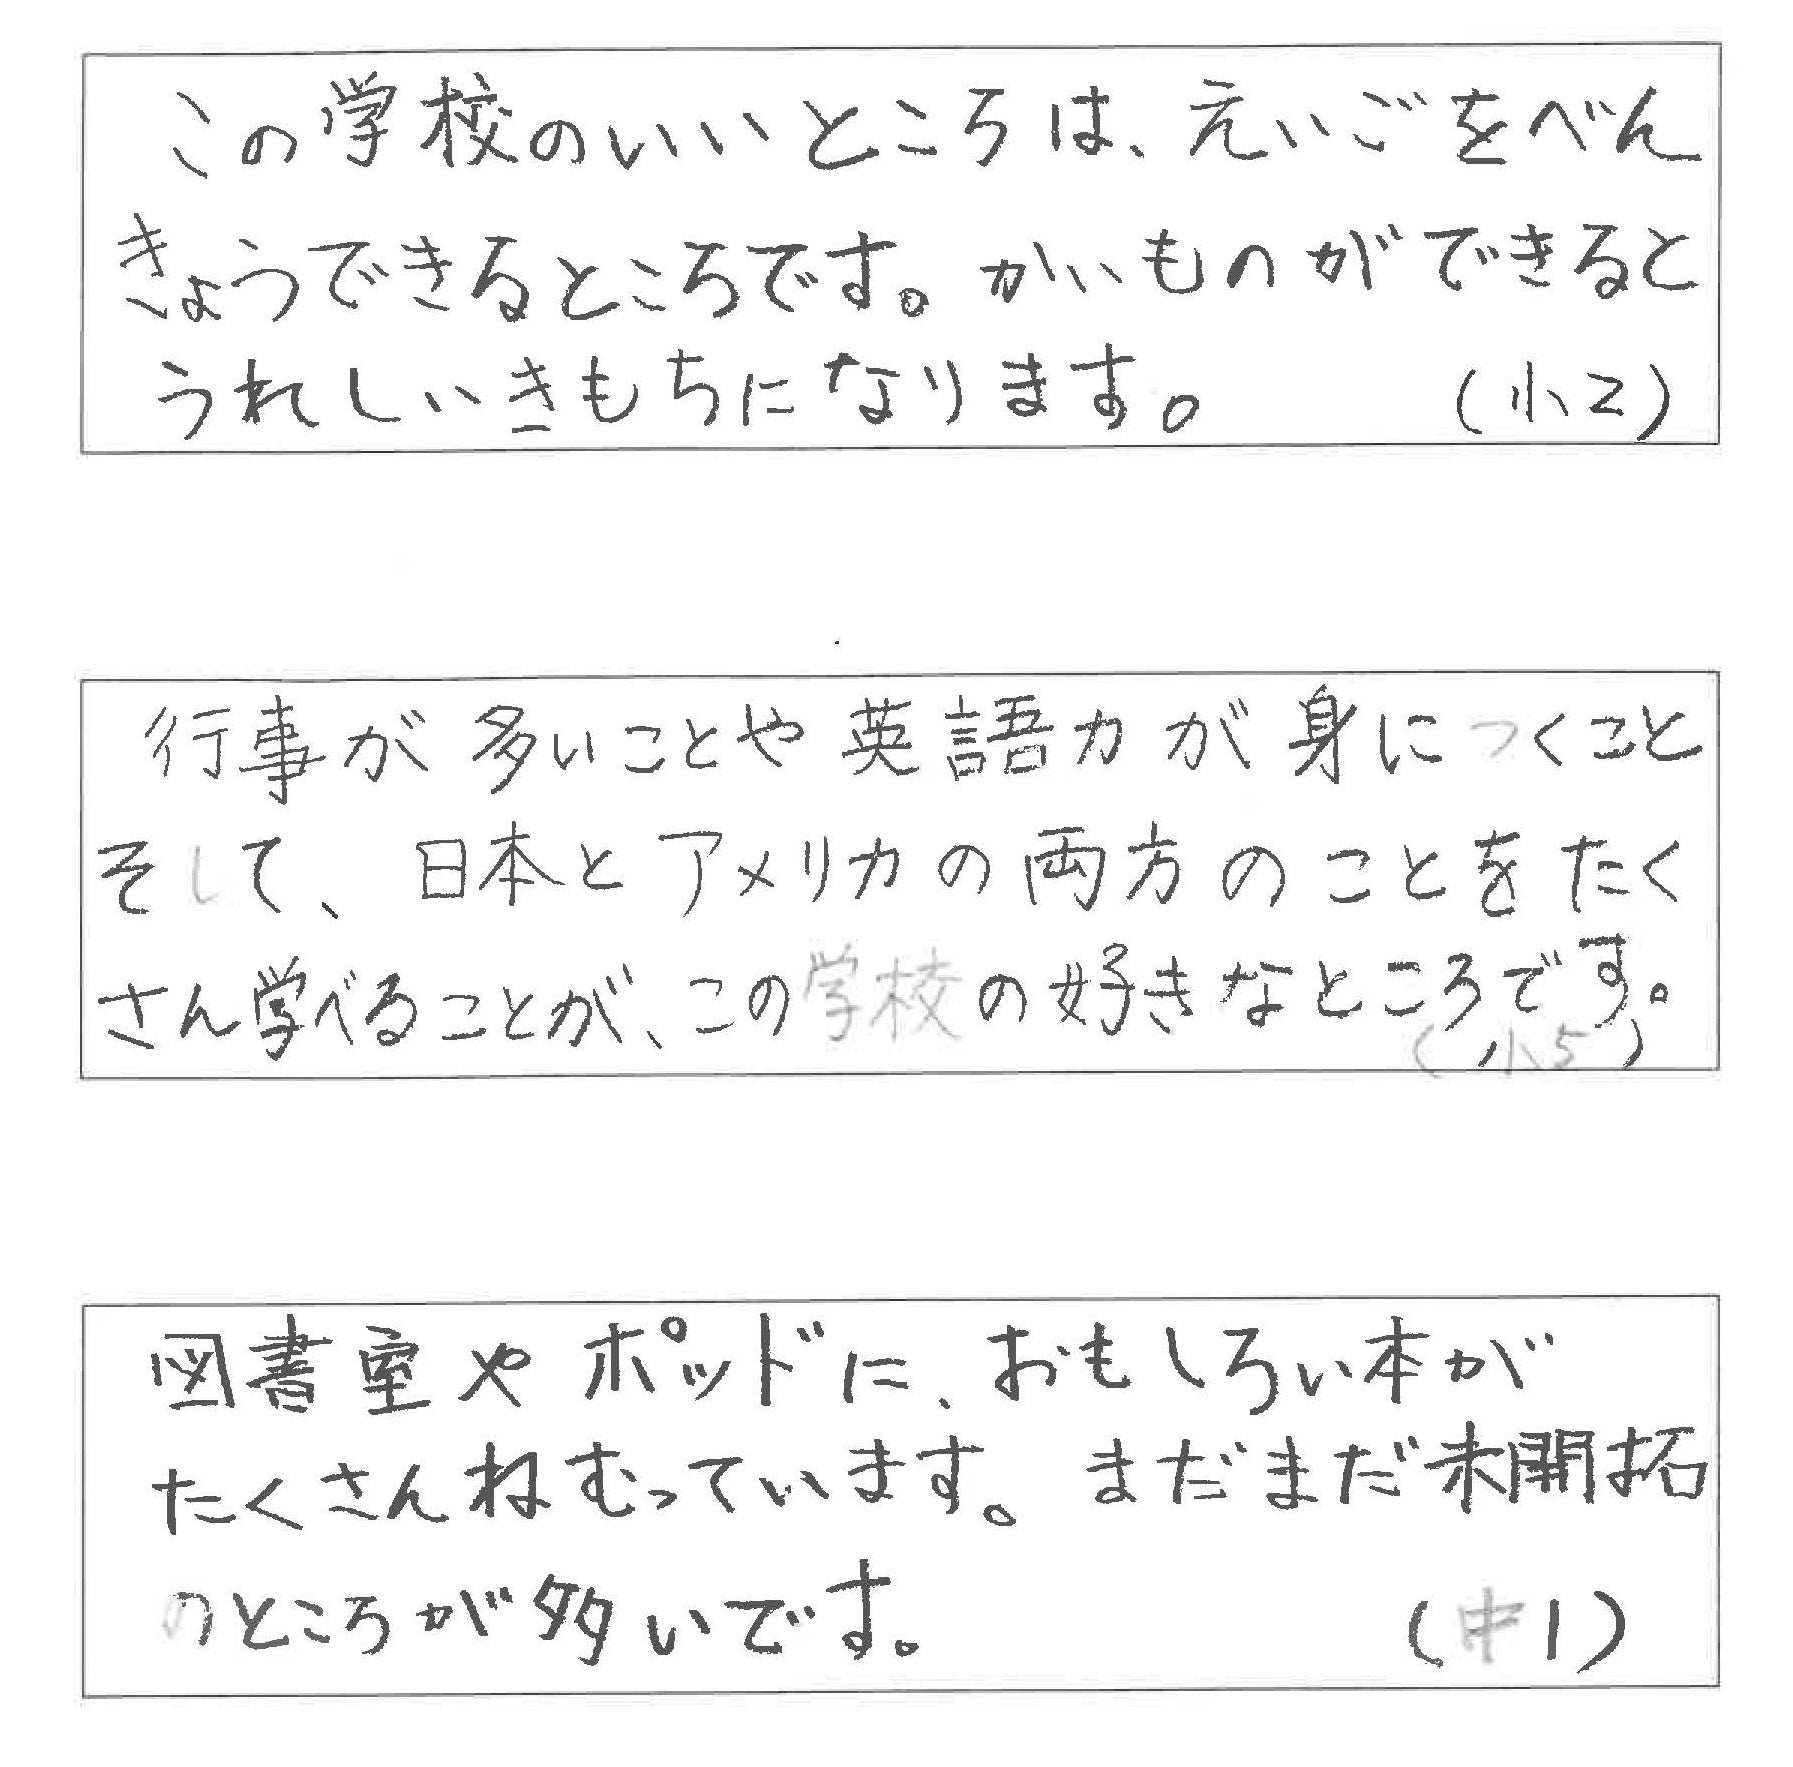 この学校のいいところは、えいごをべん
きょうできるところです。かいものができると
うれしいきもちになります。 (小2)
行事が多いことや英語力が身につくこと
そして、日本とアメリカの両方のことをたく
さん学べることが、この学校の好きなところです。
(小5)
図書室やポッドに、おもしろい本が
たくさんねむっています。まだまだ未開拓
のところが多いです。 (中1)